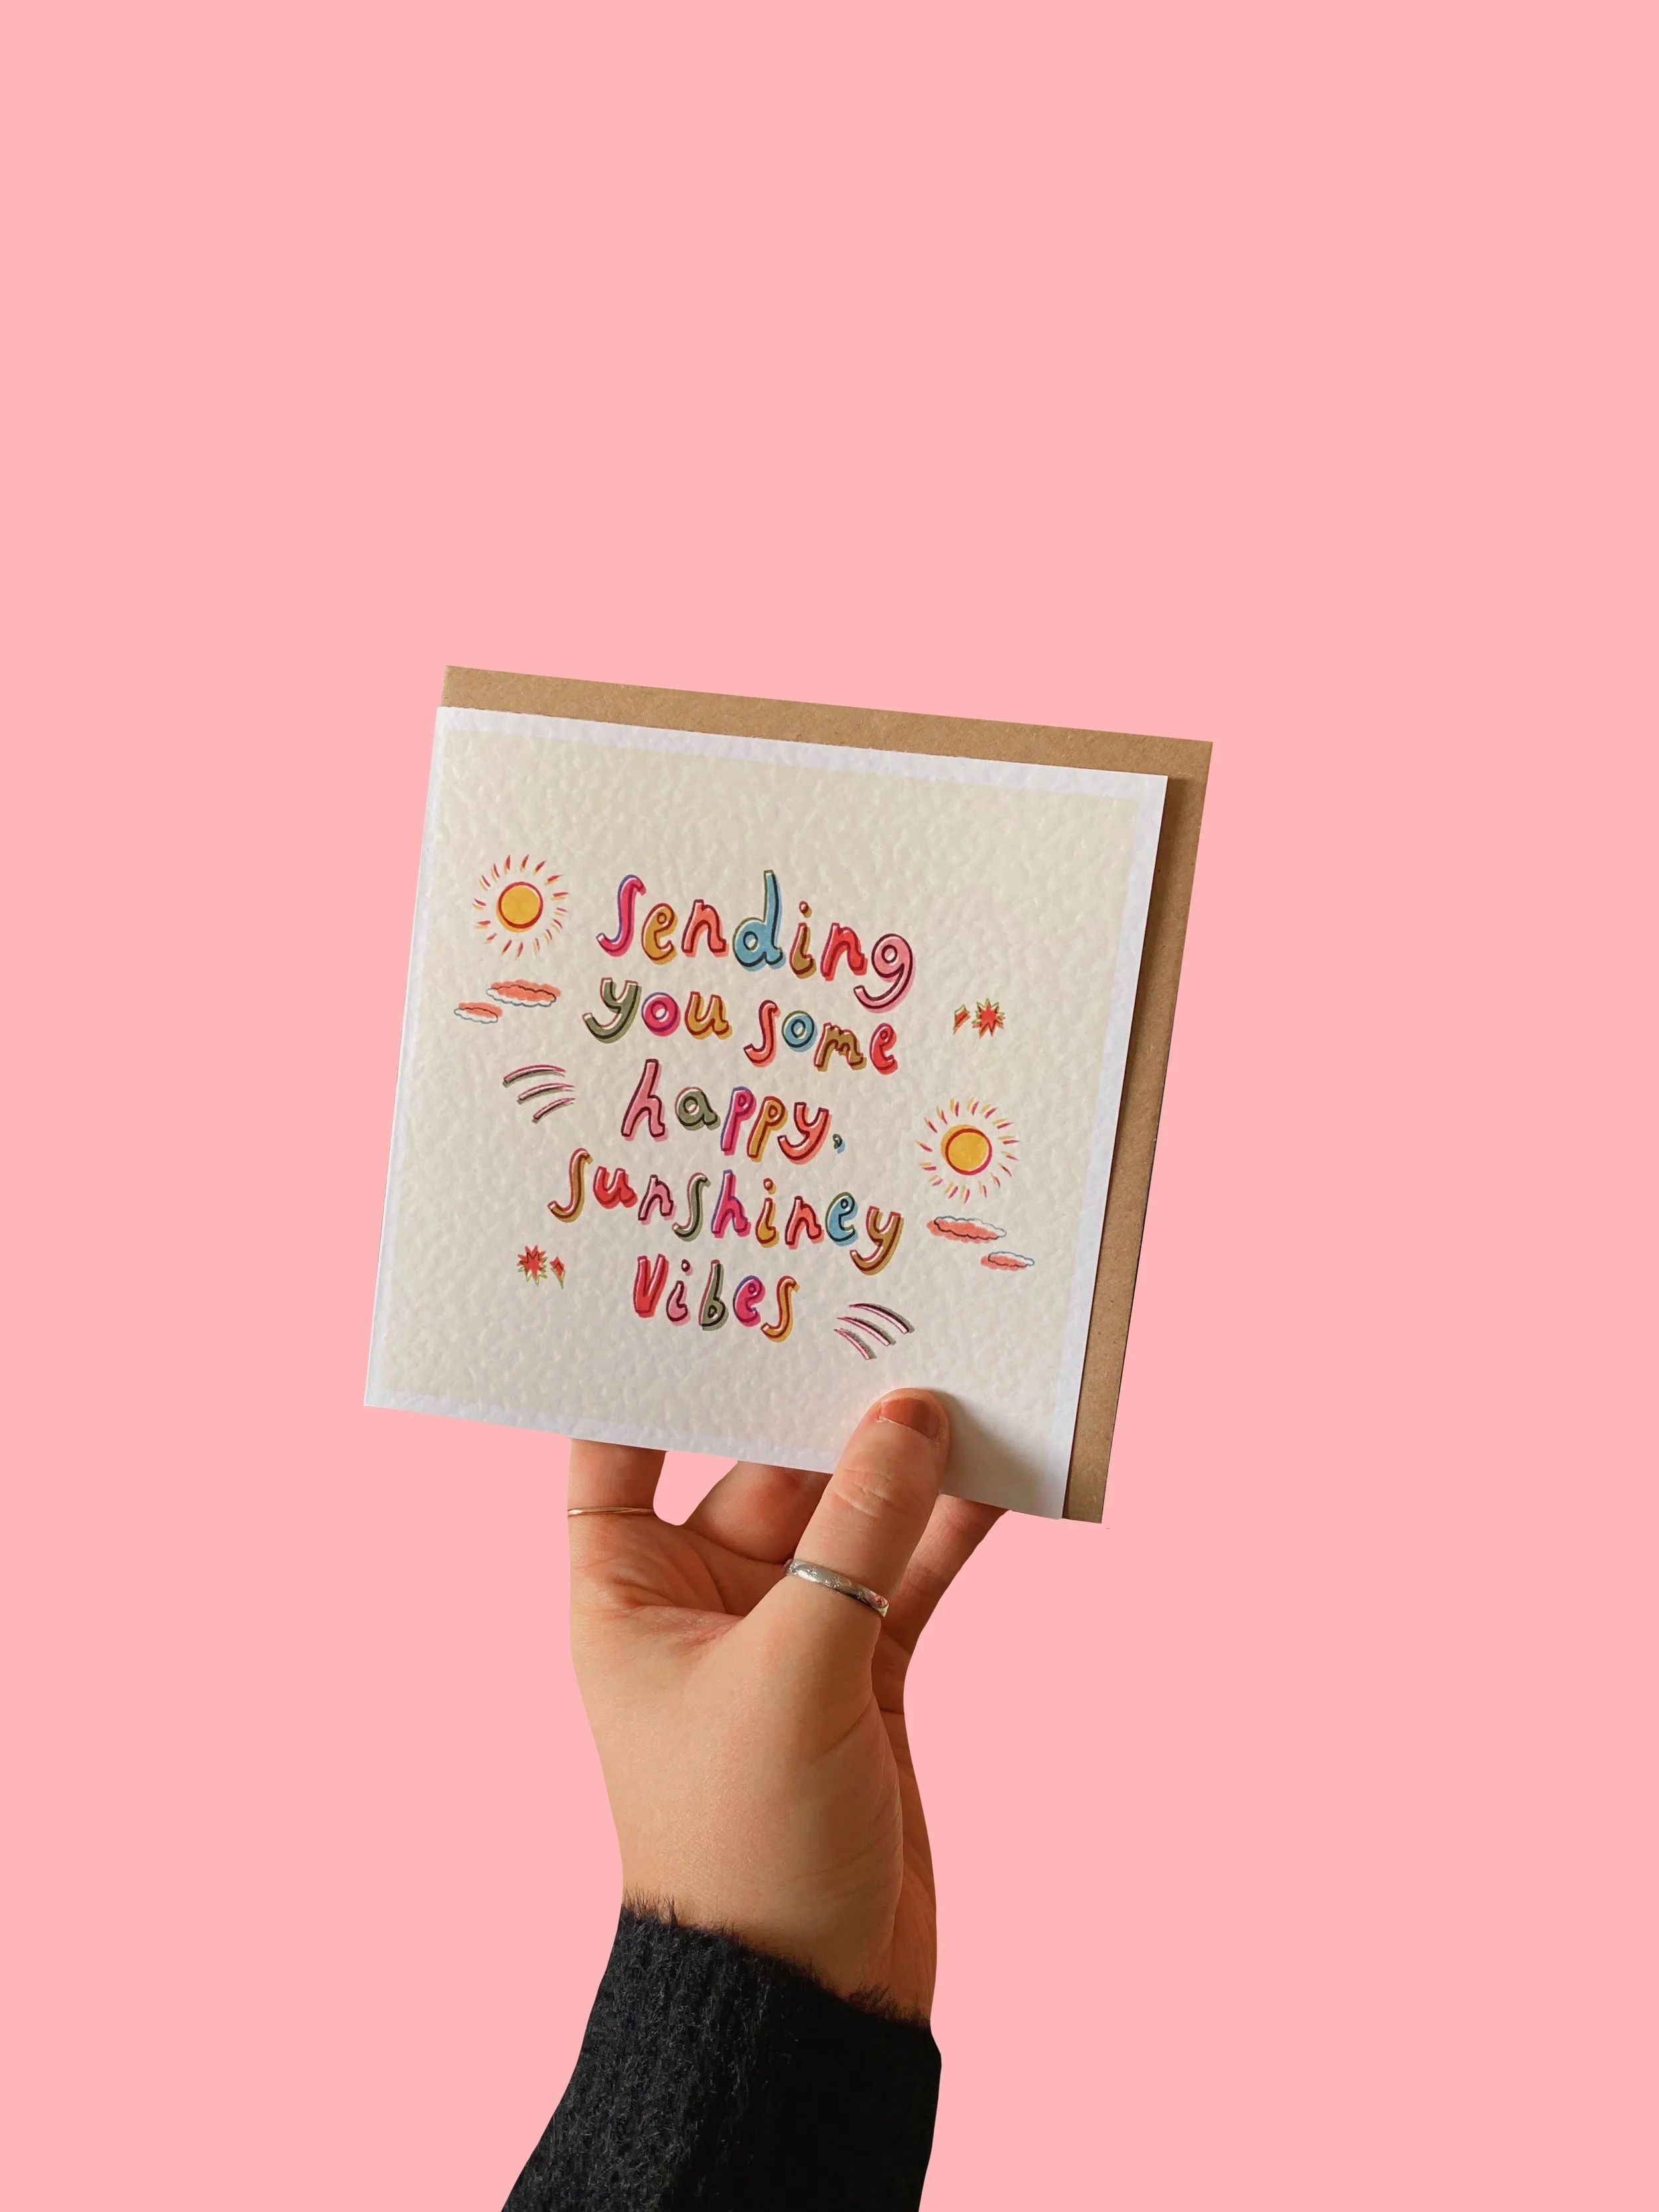 Sending
you some
happy,
Sunshiney
Vibes